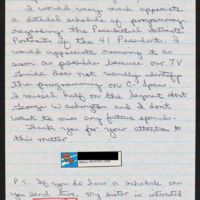 I would very much appreciate
a detailed schedule of programming
regarding the Presidential
Portraits of the 41 Presidents. I
would appreciate receiving it as
soon as possible because our TV
Guide does not usually identify
the programming on C-Span.
I missed half on the segment about
George Washington and I don't
want to miss any future specials.
Thank you for your attention to
this matter.
P.S. If you do have a schedule can
you send two. My sister is interested